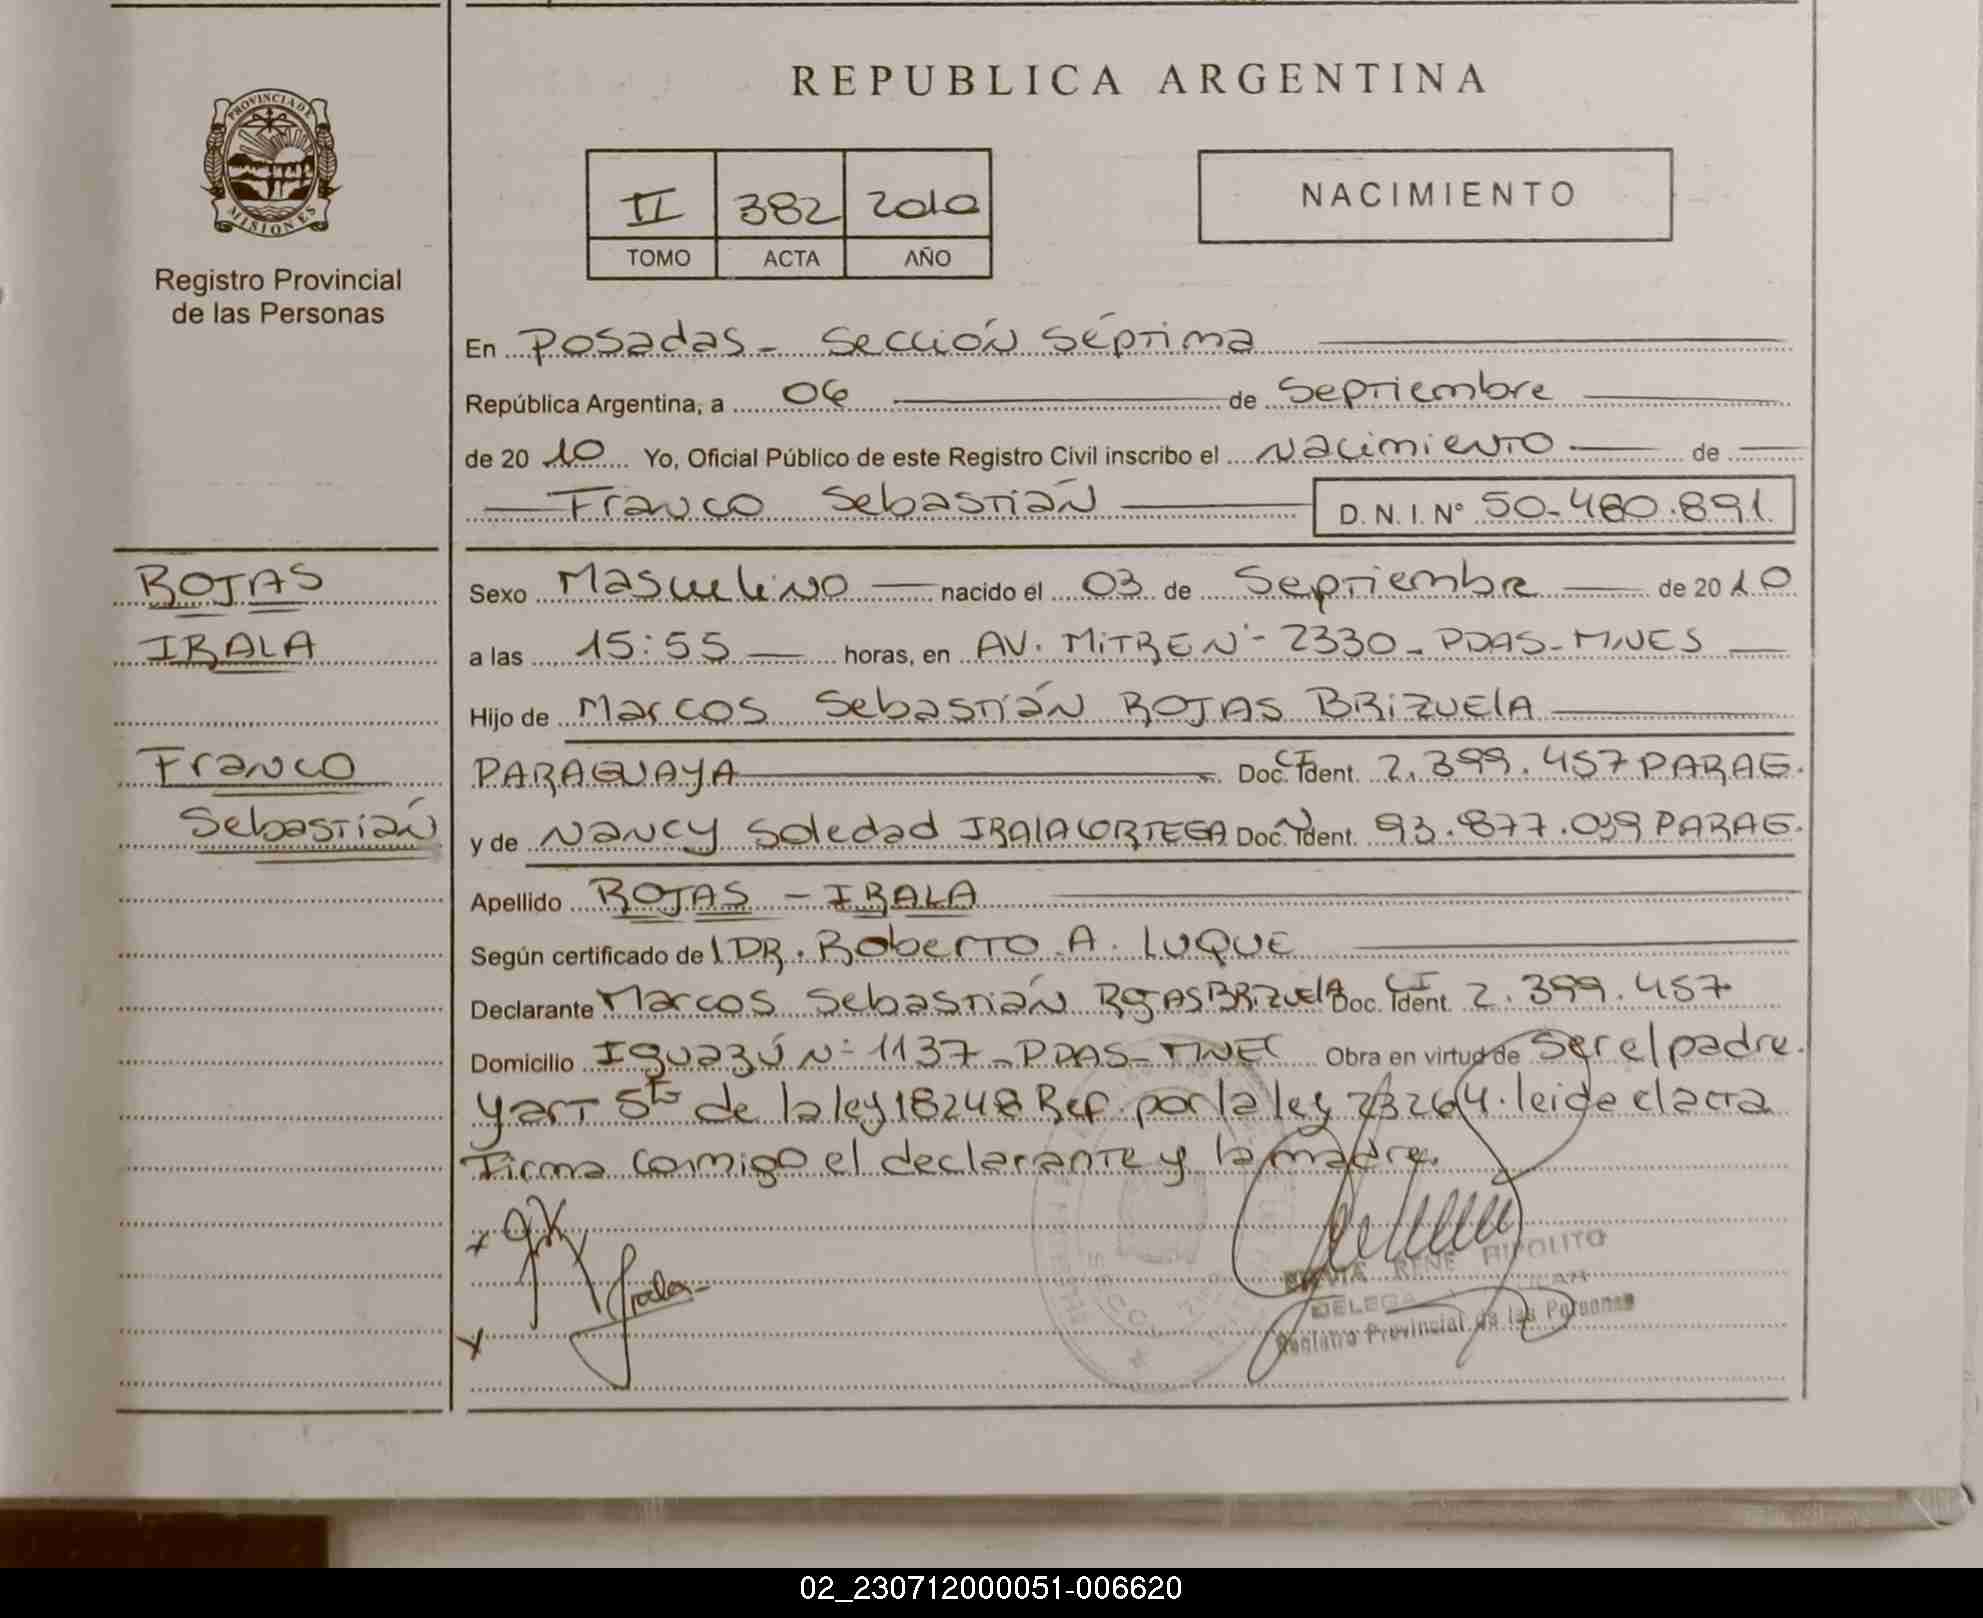 REPUBLICA ARGENTINA
PROVINCIA DE
MISIONES
Registro Provincial
de las Personas
II 382 2010
TOMO ACTA AÑO
NACIMIENTO
En Posadas - Sección Séptima
República Argentina, a 06 de Septiembre
de 20 10 Yo, Oficial Público de este Registro Civil inscribo el Nacimiento de
Franco Sebastián D.N.I. Nº 50.480.891
ROJAS
IRALA
Franco
Sebastián
Sexo Masculino nacido el 03 de Septiembre de 20 10
a las 15:55 horas, en AV. MITRE Nº 2330 - PDAS - MNES
Hijo de Marcos Sebastián ROJAS BRIZUELA
PARAGUAYA Doc. Ident. CI 2.399.457 PARAG.
y de Nancy Soledad IRALA CORTEGA Doc. Ident. 93.877.039 PARAG.
Apellido ROJAS - IRALA
Según certificado de DR. Roberto A. LUQUE
Declarante Marcos Sebastián ROJAS BRIZUELA Doc. Ident. CI 2.399.457
Domicilio Iguazú Nº 1137 - PDAS - MNES Obra en virtud de Ser el padre.
y art 5to de la ley 18248 Ref. por la ley 23264. leida el acta
Firma conmigo el declarante y la madre.
Irala
RENE HIPOLITO
Registro Provincial de las Personas
02_230712000051-006620